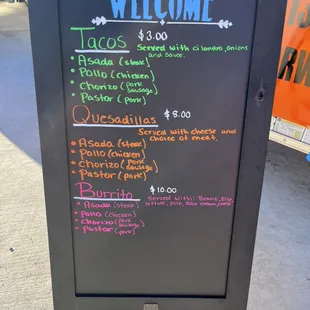 WELCOME
Tacos $3.00
Served with cilantro, onions
and sauce.
• Asada (steak)
• Pollo (chicken)
• Chorizo (pork sausage)
• Pastor (pork)
Quesadillas $8.00
Served with cheese and
choice of meat.
• Asada (steak)
• Pollo (chicken)
• Chorizo (pork sausage)
• Pastor (pork)
Burrito $10.00
Served with: Beans, rice
lettuce, pico, sour cream,
• Asada (steak)
• Pollo (chicken)
• Chorizo (pork sausage)
• Pastor (pork)